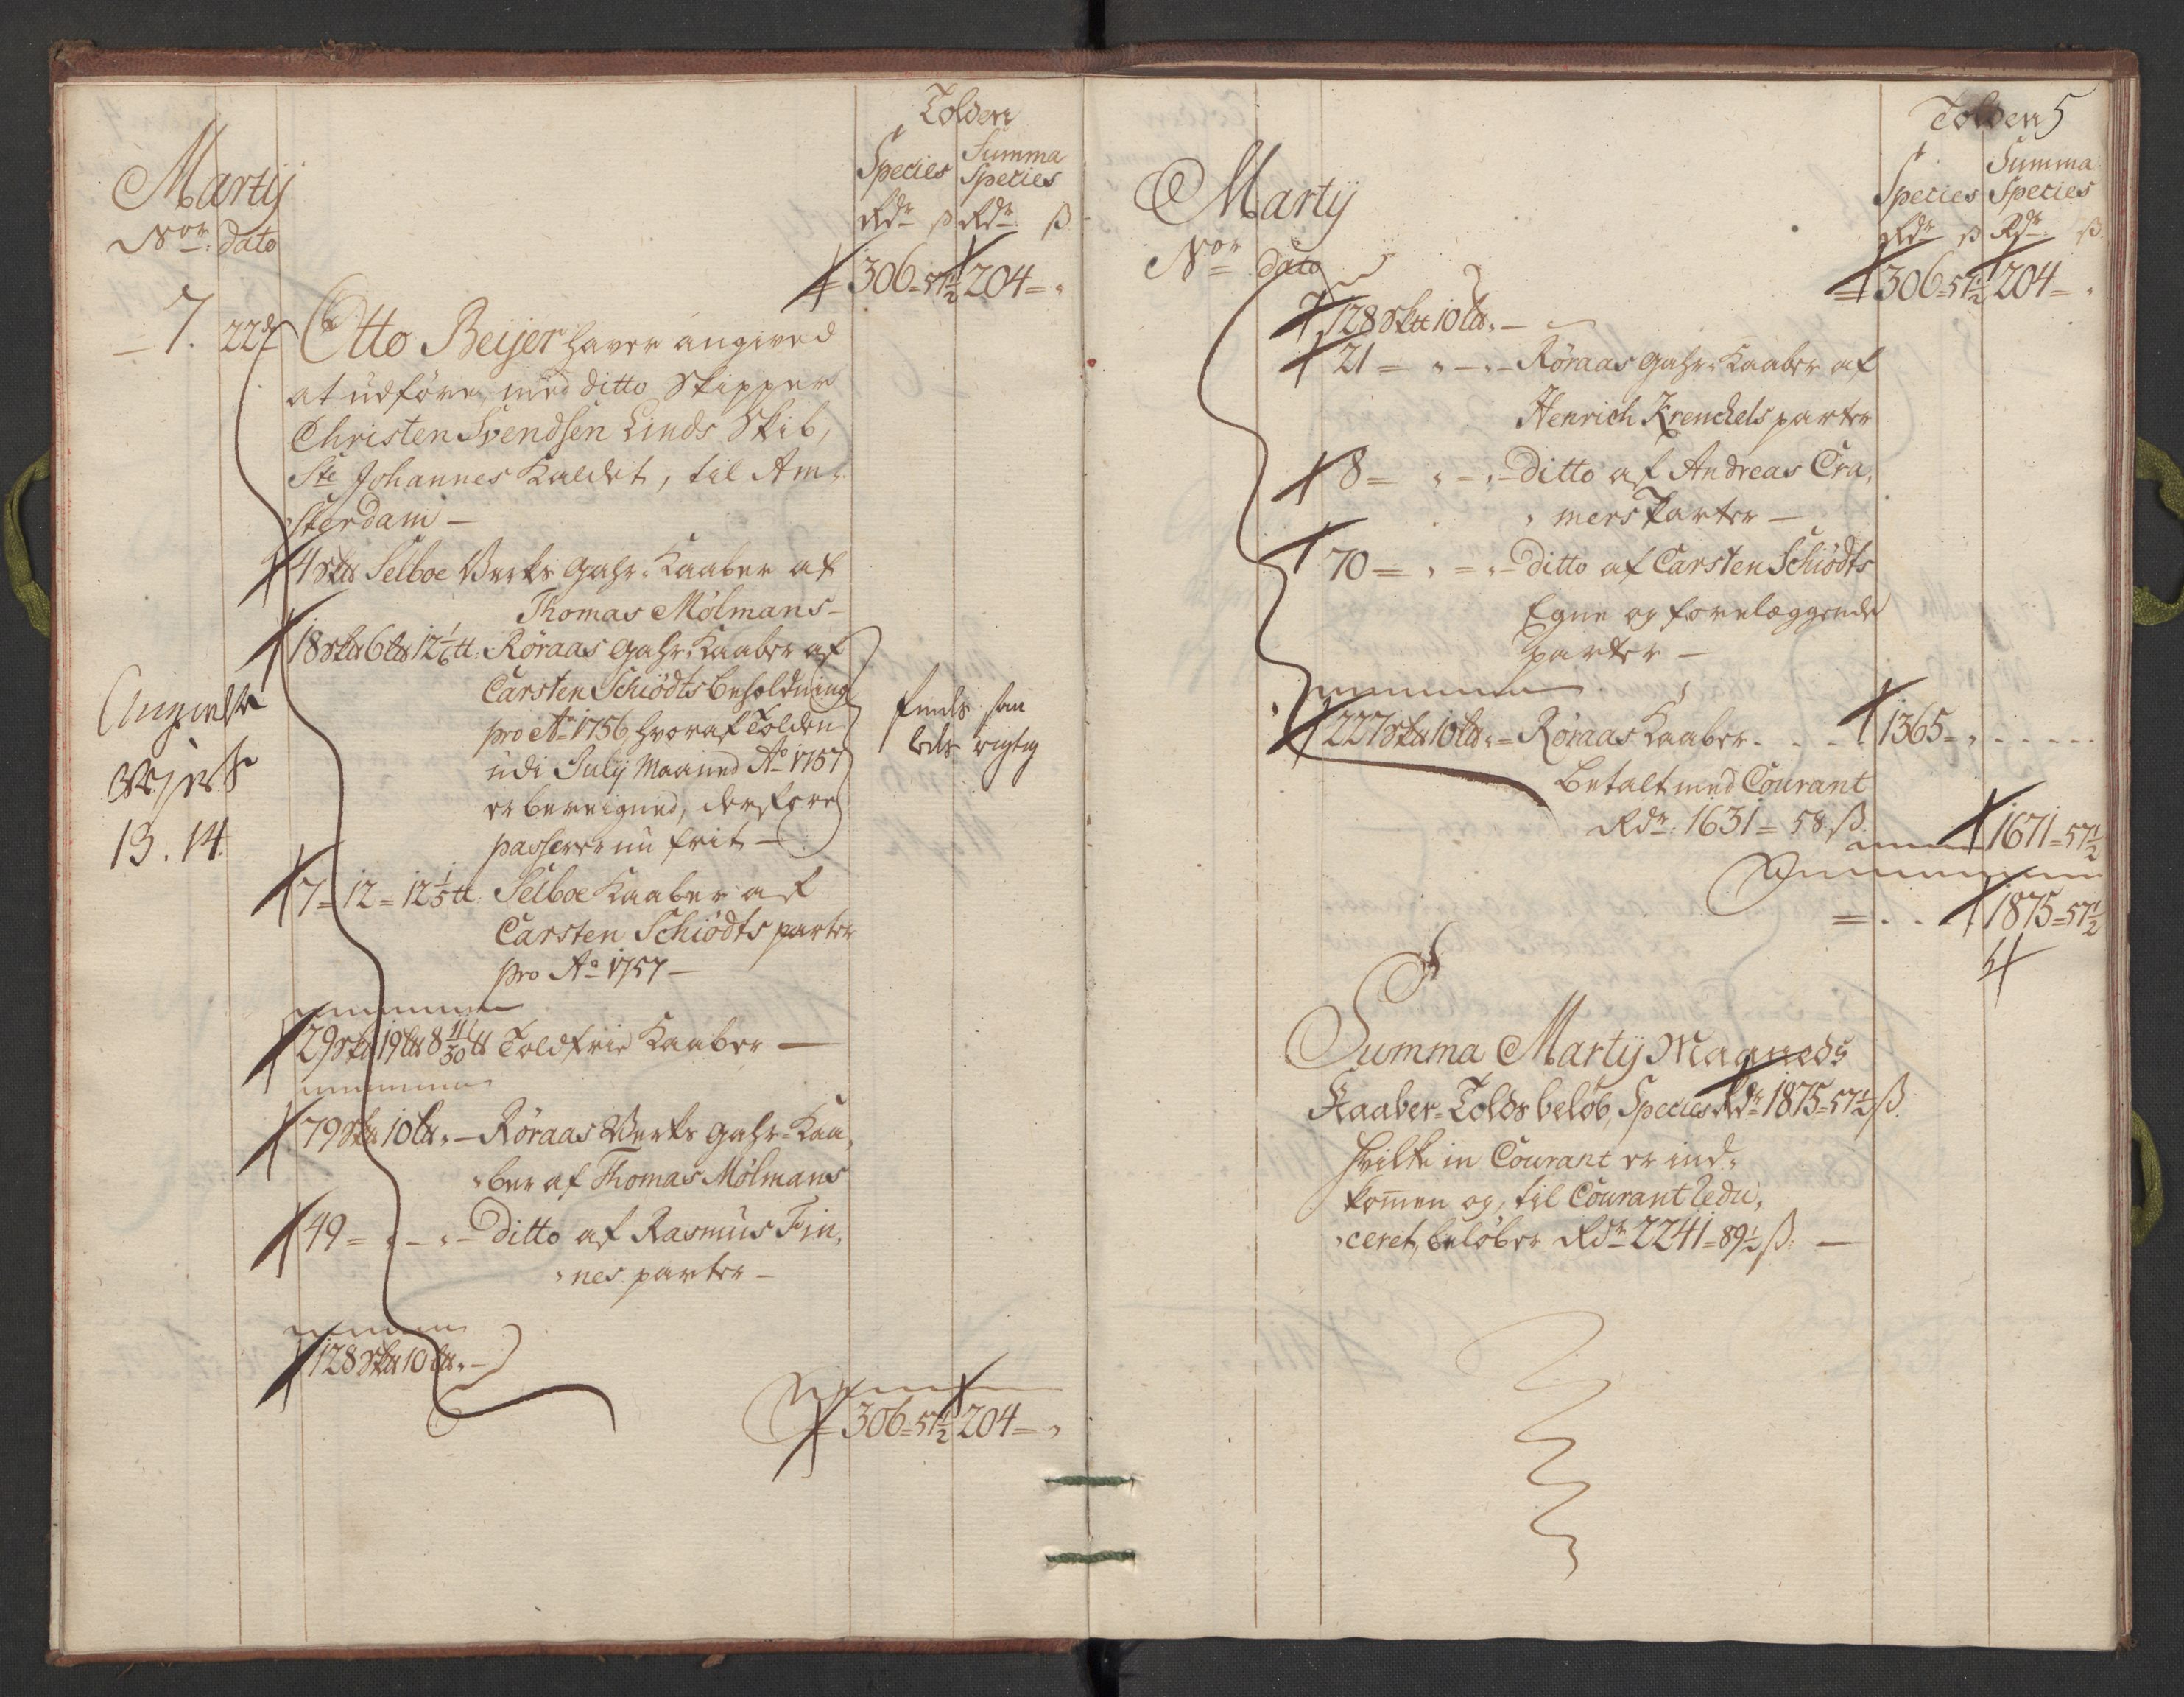 Tolden
Martij
Species
Summa
Species
Rdr ß Rdr ß
Nor: dato
306=57½ 204=„
7. 22d
Otto Beijer haver angived
at udföre, med ditto Skipper
Christen Svendsen Linds Skib,
Ste Johannes Kaldet, til Am-
sterdam —
4 sktt Selboe Verks Gahr-Kaaber af
Thomas Mølmans —
18 sktt 6 ltt 12⅙ tt: Røraas Gahr-Kaaber af
Carsten Schiødts beholdning
pro Ao 1756, hvoraf Tolden
udi Julij Maaned Ao 1757
er bereigned, derfore
passerer nu frit —
Angivelse
13. 14.
rigtig
7=12=12⅕ tt. Selboe Kaaber af
Carsten Schiødts parter
pro Ao 1757 —
29 sktt 19 ltt 8 11/30 tt Toldfrie Kaaber —
79 sktt 10 ltt „ — Røraas Verks Gahr-Kaa-
ber af Thomas Mølmans
49 = „ — „ — Ditto af Rasmus Fin-
nes parter —
128 sktt 10 ltt „ —
306=57½ 204=„
Tolden 5
Martij
Species
Summa
Species
Rdr ß Rdr ß
Nor dato
306=57½ 204=„
128 sktt 10 ltt „ —
21 = „ — „ — Røraas Gahr-Kaaber af
Henrich Krenckels parter
8 = „ — „ — Ditto af Andreas Cra-
mers Parter —
70 = „ = „ — Ditto af Carsten Schiødts
Egne og forelæggende
parter —
227 sktt 10 ltt „ = Røraas Kaaber . . . . 1365 = „ . . . .
betalt med Courant
Rdr: 1631 = 58 ß.
1671=57½
= . . . 1875=57½
Summa Martij Maaneds
Kaaber-Tolds beløb, Species Rdr 1875=57½ ß.
hvilke in Courant er ind-
kom̅en og, til Courant redu-
ceret, beløber Rdr 2241=89½ ß: —